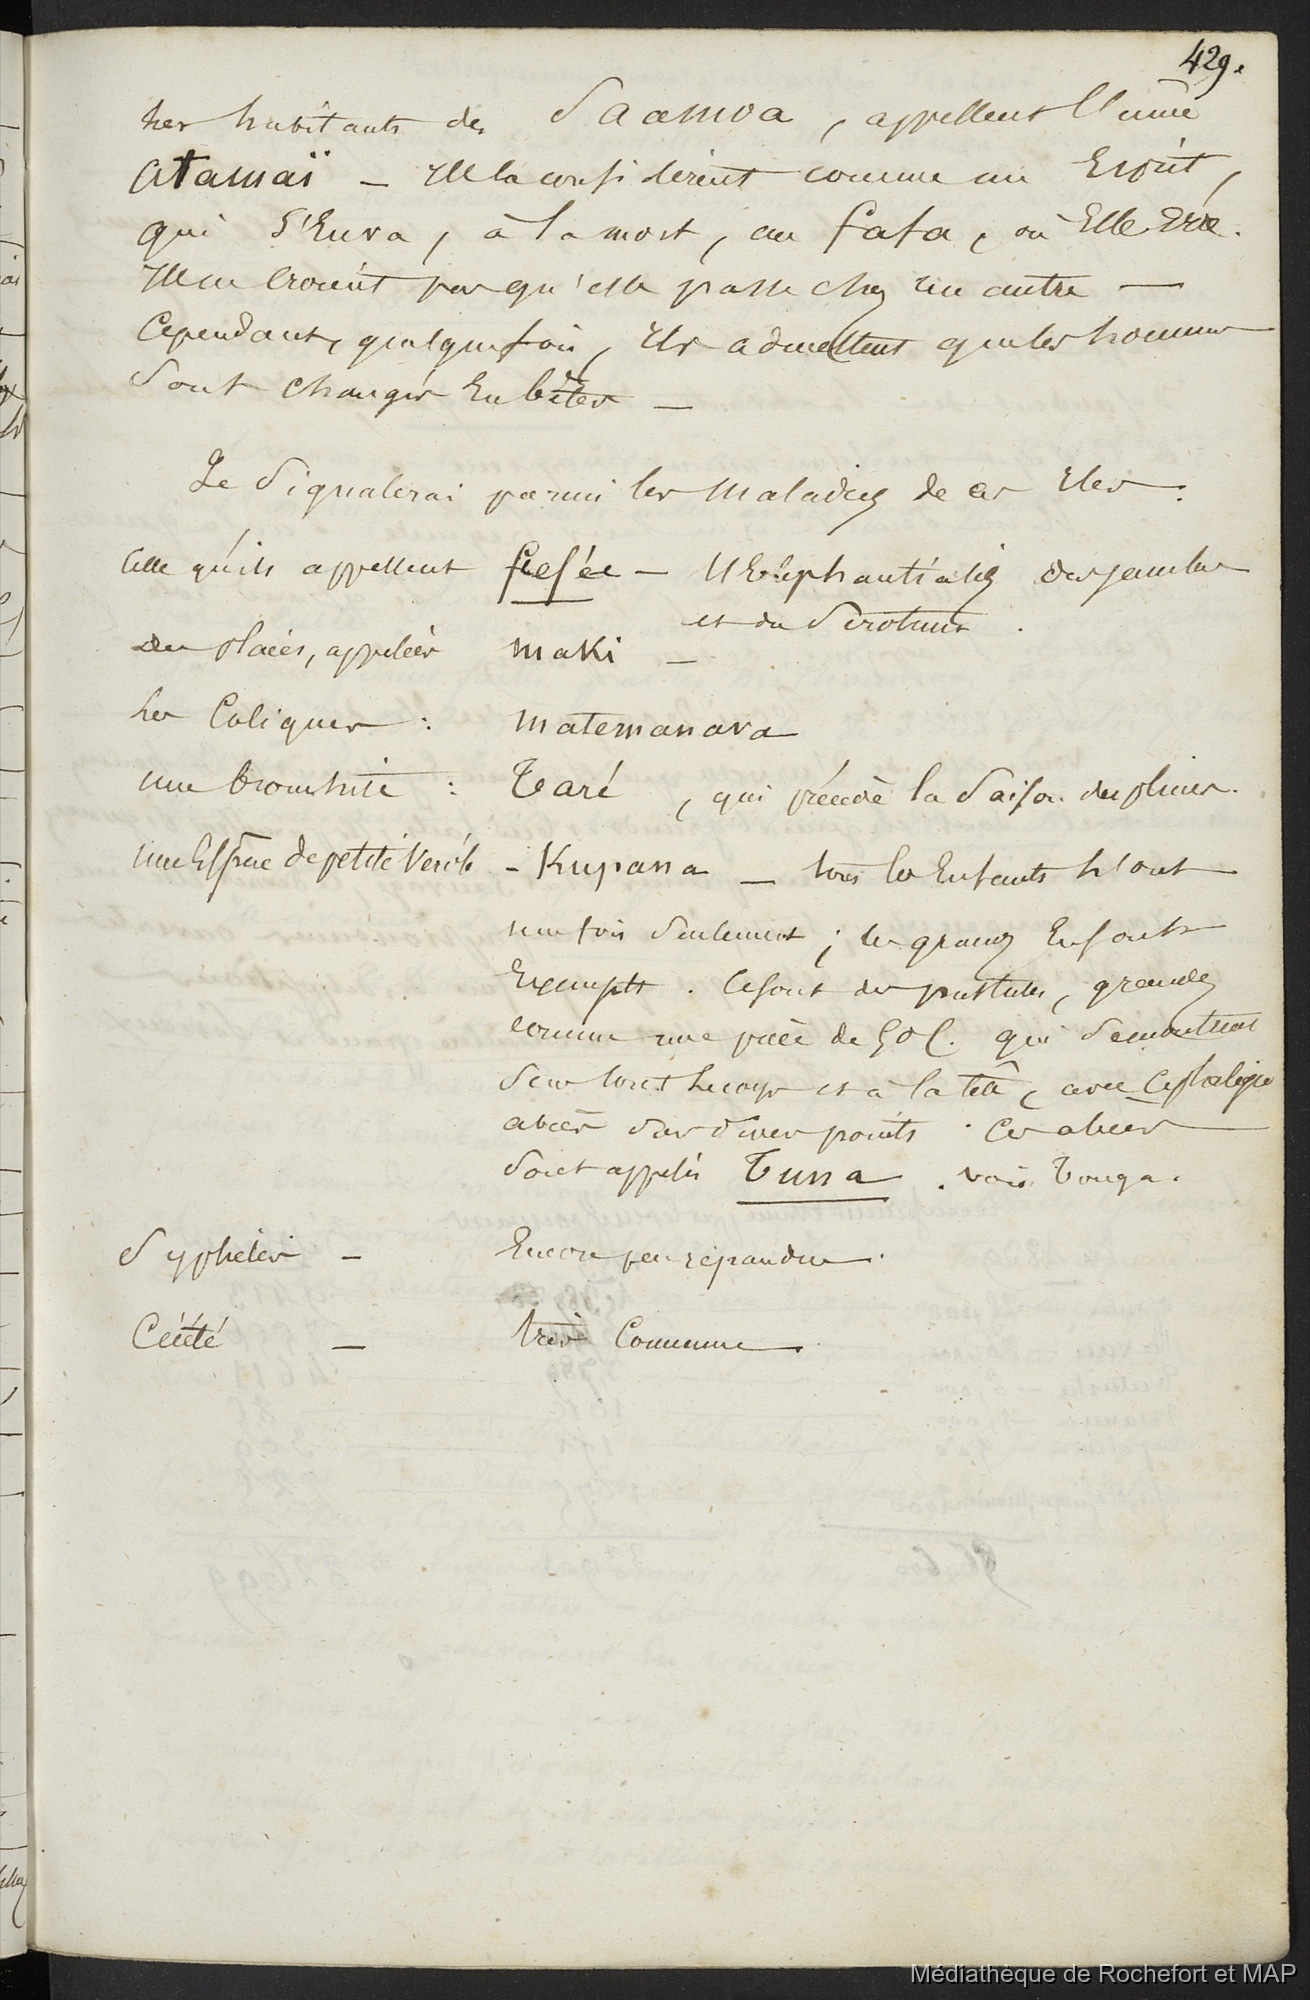 429.
Les habitants des Saamoa, appellent l'âme
Atamaï — Ils la considèrent comme un Esprit,
qui s'en va, à la mort, au fafa, où Elle Erre.
Ils ne croient pas qu'elle passe chez un autre —
Cependant, quelquefois, Ils admettent que les hommes
sont changés en bêtes —
Je signalerai parmi les maladies de ces Iles :
Celle qu'ils appellent feefée — L'Elephantiasis des jambes
et du Scrotum.
des plaies, appelées maki —
Les Coliques : matemanava
une bronchite : Taré, qui précède la saison des pluies.
une Espece de petite Verole - Kupana — tous les Enfants l'ont
une fois seulement ; les grands En sont
Exempts. Ce sont des pustules, grandes
comme une pièce de 50 C. qui se montrent
sur tout le corps et à la tête, avec Cephalalgie
abcès sur divers points. Ces abcès
sont appelés Tuna. vois Tonga.
Syphilis — Encore peu répandue.
Cécité — très Commune.
Médiathèque de Rochefort et MAP